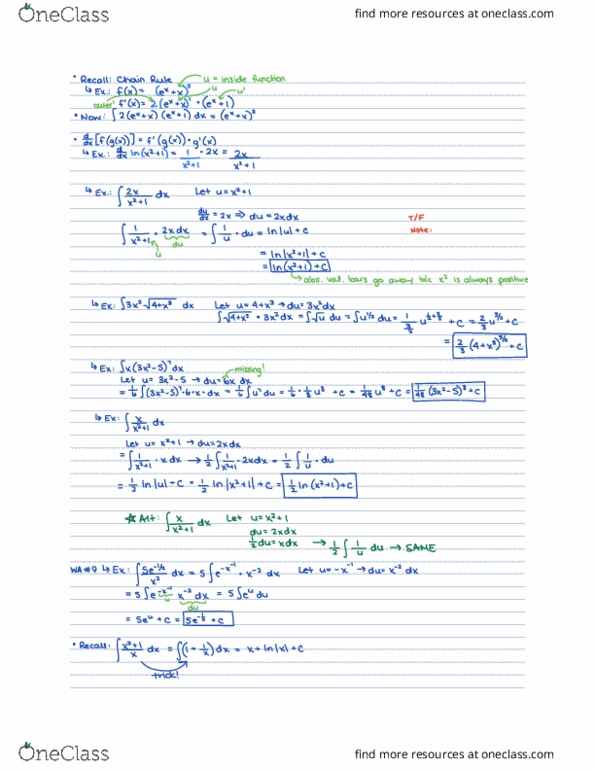 OneClass
find more resources at oneclass.com
• Recall: Chain Rule u = inside function
↳ Ex.: f(x) = (eˣ+x)² u u'
outer' f'(x) = 2(eˣ+x)¹ · (eˣ+1)
• Now: ∫2(eˣ+x)(eˣ+1)dx = (eˣ+x)²
• d/dx[f(g(x))] = f'(g(x))·g'(x)
↳ Ex: d/dx ln(x²+1) = 1/(x²+1) · 2x = 2x/(x²+1)
↳ Ex.: ∫ 2x/(x²+1) dx Let u=x²+1
du/dx = 2x ⇒ du=2xdx
T/F
Note:
∫ 1/(x²+1) · 2xdx = ∫ 1/u · du = ln|u|+c
u du
= ln|x²+1|+c
= ln(x²+1)+c
→ abs. val. bars go away b/c x² is always positive
↳ Ex: ∫3x²√(4+x³) dx Let u=4+x³ → du=3x²dx
∫√(4+x³) · 3x²dx = ∫√u du = ∫u^(1/2) du = 1/(3/2) u^(1/2+2/2) +c = 2/3 u^(3/2) +c
= 2/3 (4+x³)^(3/2) +c
↳ Ex: ∫x(3x²-5)⁷dx missing!
Let u= 3x²-5 → du=6x dx
= 1/6 ∫(3x²-5)⁷·6·x·dx = 1/6 ∫u⁷du = 1/6 · 1/8 u⁸ +c = 1/48 u⁸+c = 1/48 (3x²-5)⁸+c
↳ Ex: ∫ x/(x²+1) dx
Let u= x²+1 → du=2xdx
= ∫ 1/(x²+1) · xdx → 1/2 ∫ 1/(x²+1) · 2xdx = 1/2 ∫ 1/u · du
= 1/2 ln|u|+c = 1/2 ln|x²+1|+c = 1/2 ln(x²+1)+c
☆ Alt: ∫ x/(x²+1) dx Let u=x²+1
du=2xdx
1/2 du=xdx → 1/2 ∫ 1/u du → SAME
WA#9 ↳ Ex: ∫ 5e^(-1/x)/x² dx = 5∫e^(-x⁻¹) · x⁻² dx Let u=-x⁻¹ → du=x⁻² dx
= 5∫e^(-x⁻¹) x⁻² dx = 5∫eᵘ du
u du
= 5eᵘ + c = 5e^(-1/x) +c
• Recall: ∫ (x+1)/x dx = ∫(1+ 1/x)dx = x+ln|x|+c
trick!
OneClass
find more resources at oneclass.com